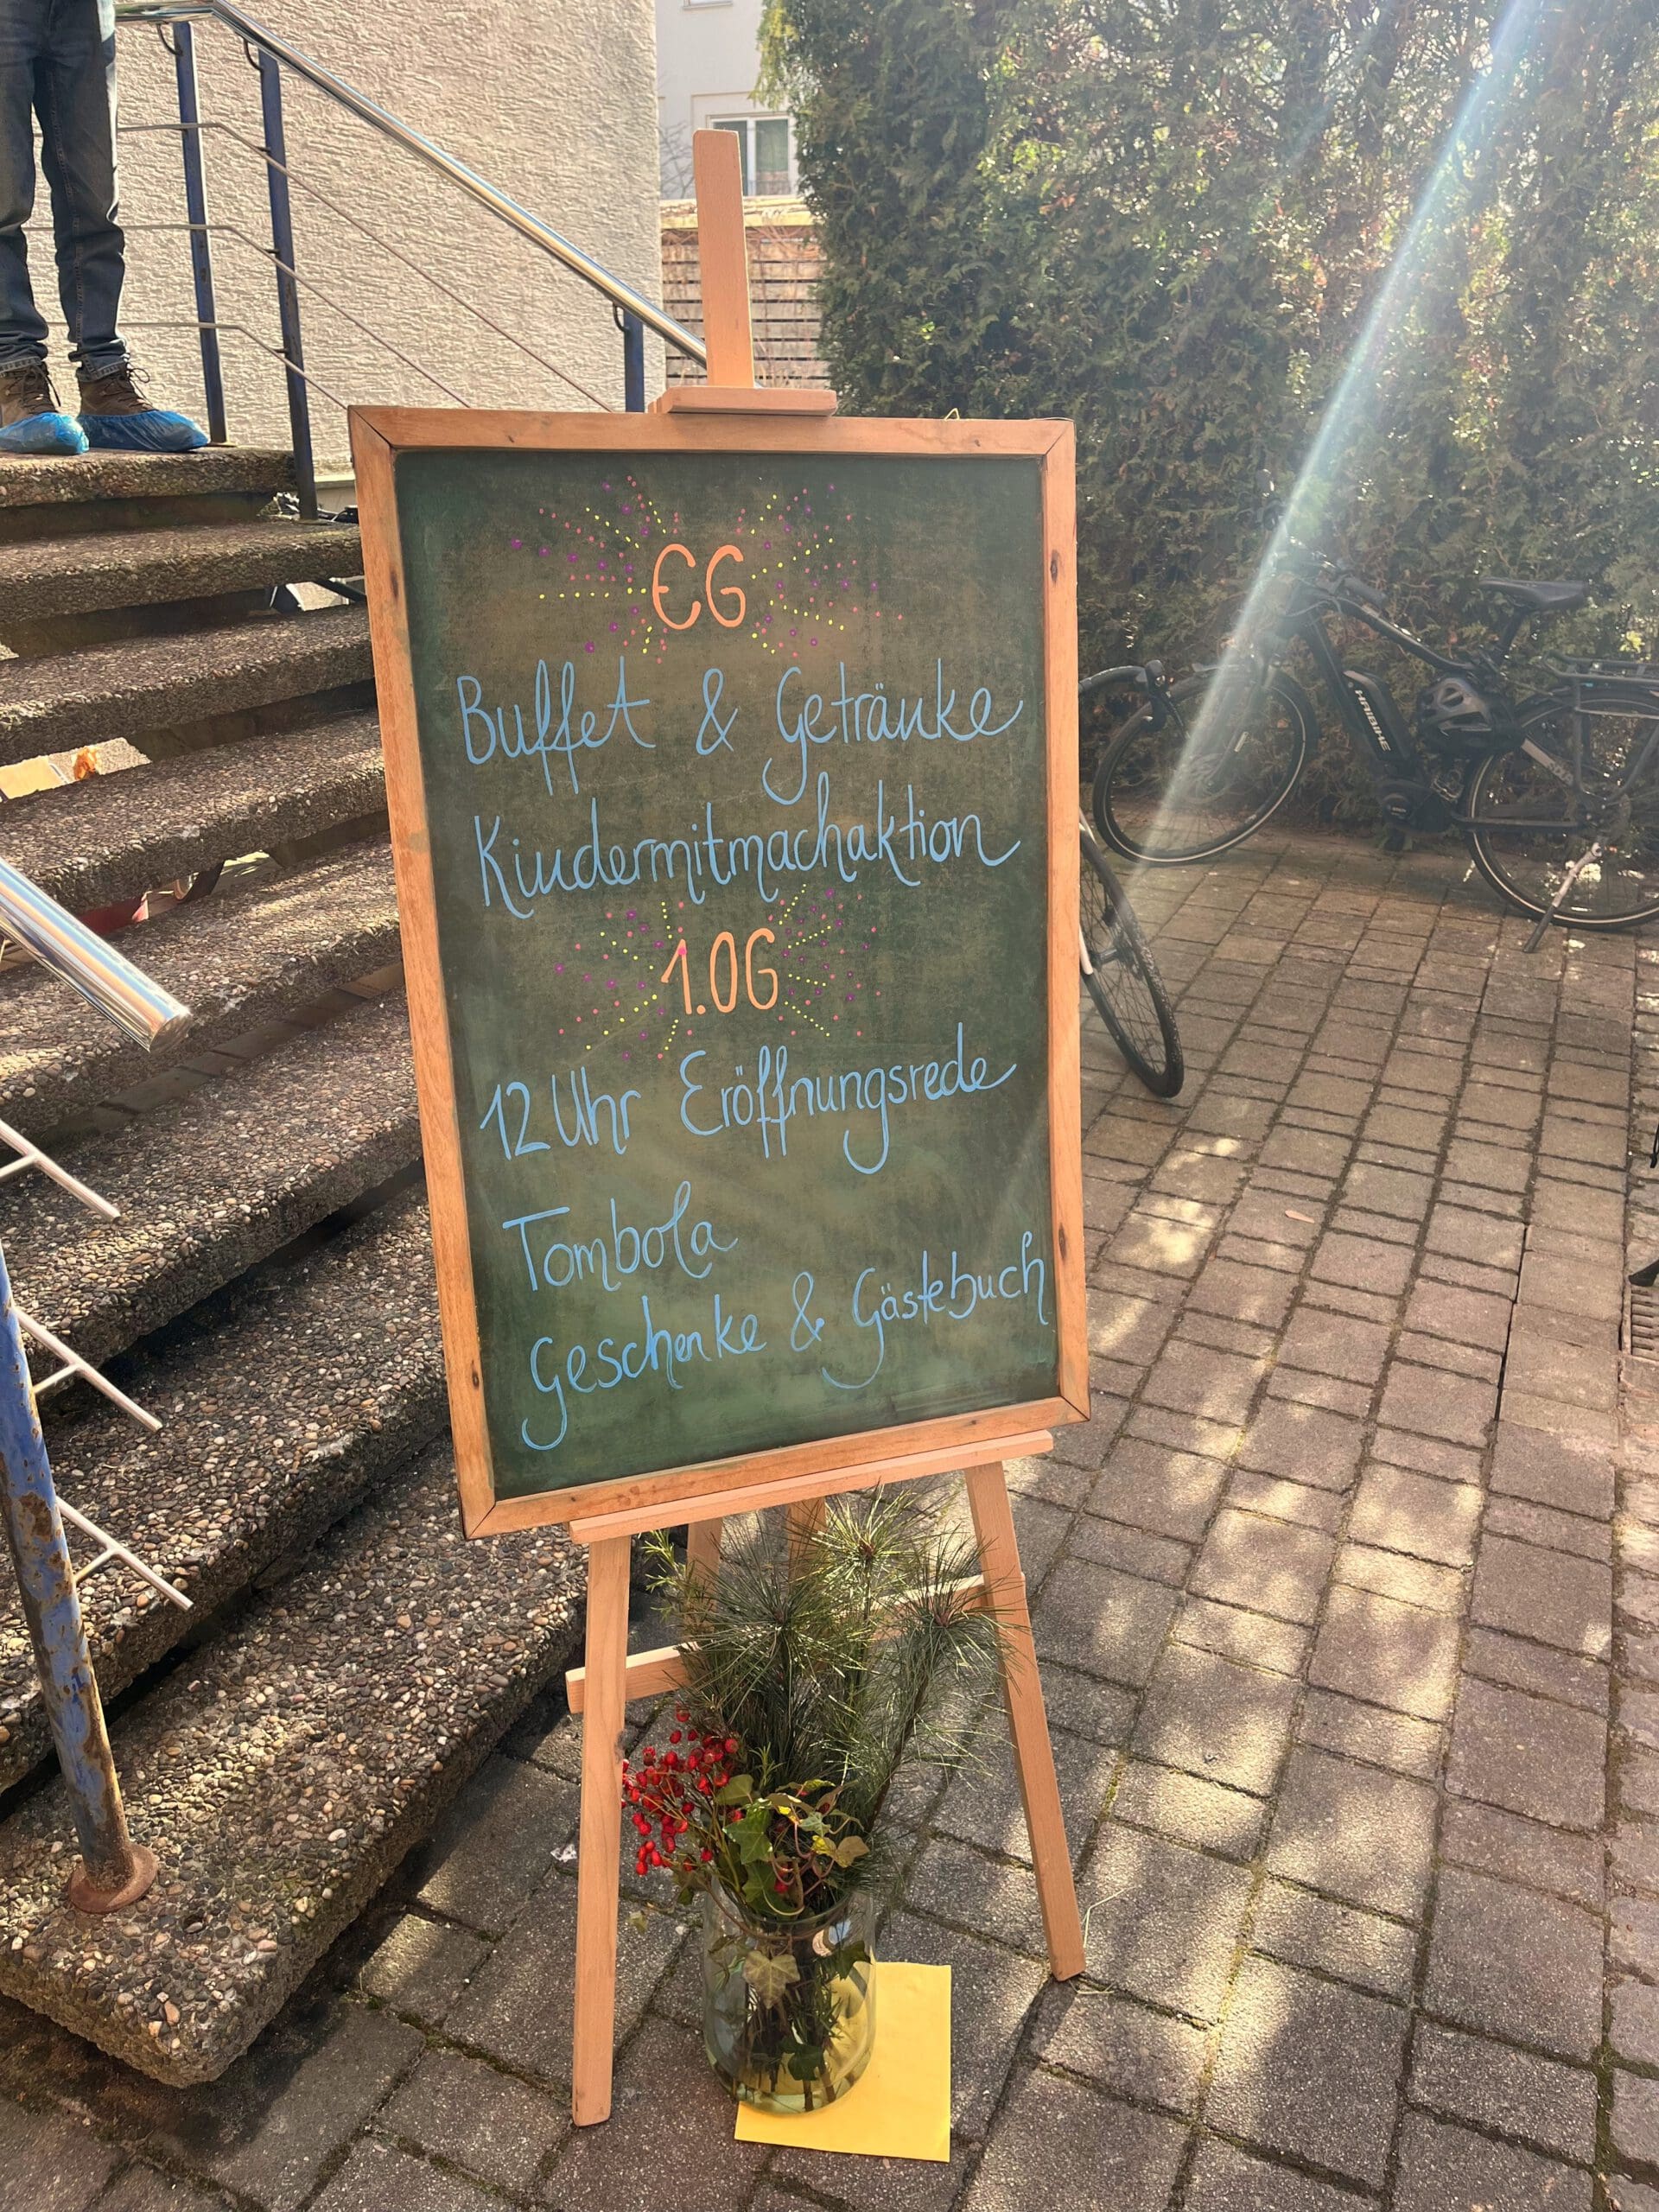 EG
Buffet & Getränke
Kindermitmachaktion
1.OG
12 Uhr Eröffnungsrede
Tombola
Geschenke & Gästebuch
HAIBIKE